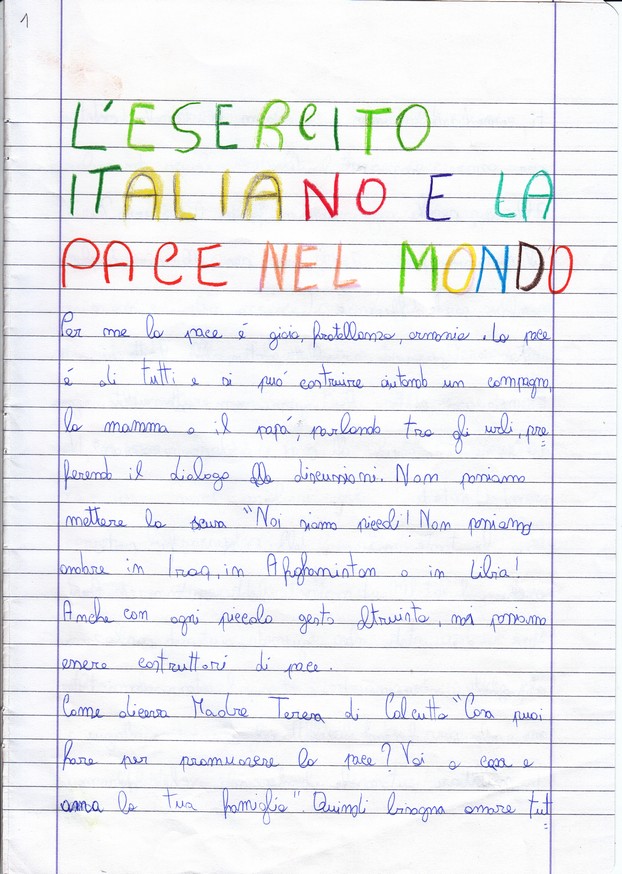 1
L'ESERCITO
ITALIANO E LA
PACE NEL MONDO
Per me la pace é gioia, fratellanza, armonia. La pace
é di tutti e si puó costruire aiutando un compagno,
la mamma o il papá, parlando tra gli urli, pre
ferendo il dialogo alle discussioni. Non possiamo
mettere la scusa "Noi siamo piccoli! Non possiamo
andare in Iraq, in Afghanistan o in Libia!
Anche con ogni piccolo gesto altruista, noi possiamo
essere costruttori di pace.
Come diceva Madre Teresa di Calcutta "Cosa puoi
fare per promuovere la pace? Vai a casa e
ama la tua famiglia". Quindi bisogna amare tut